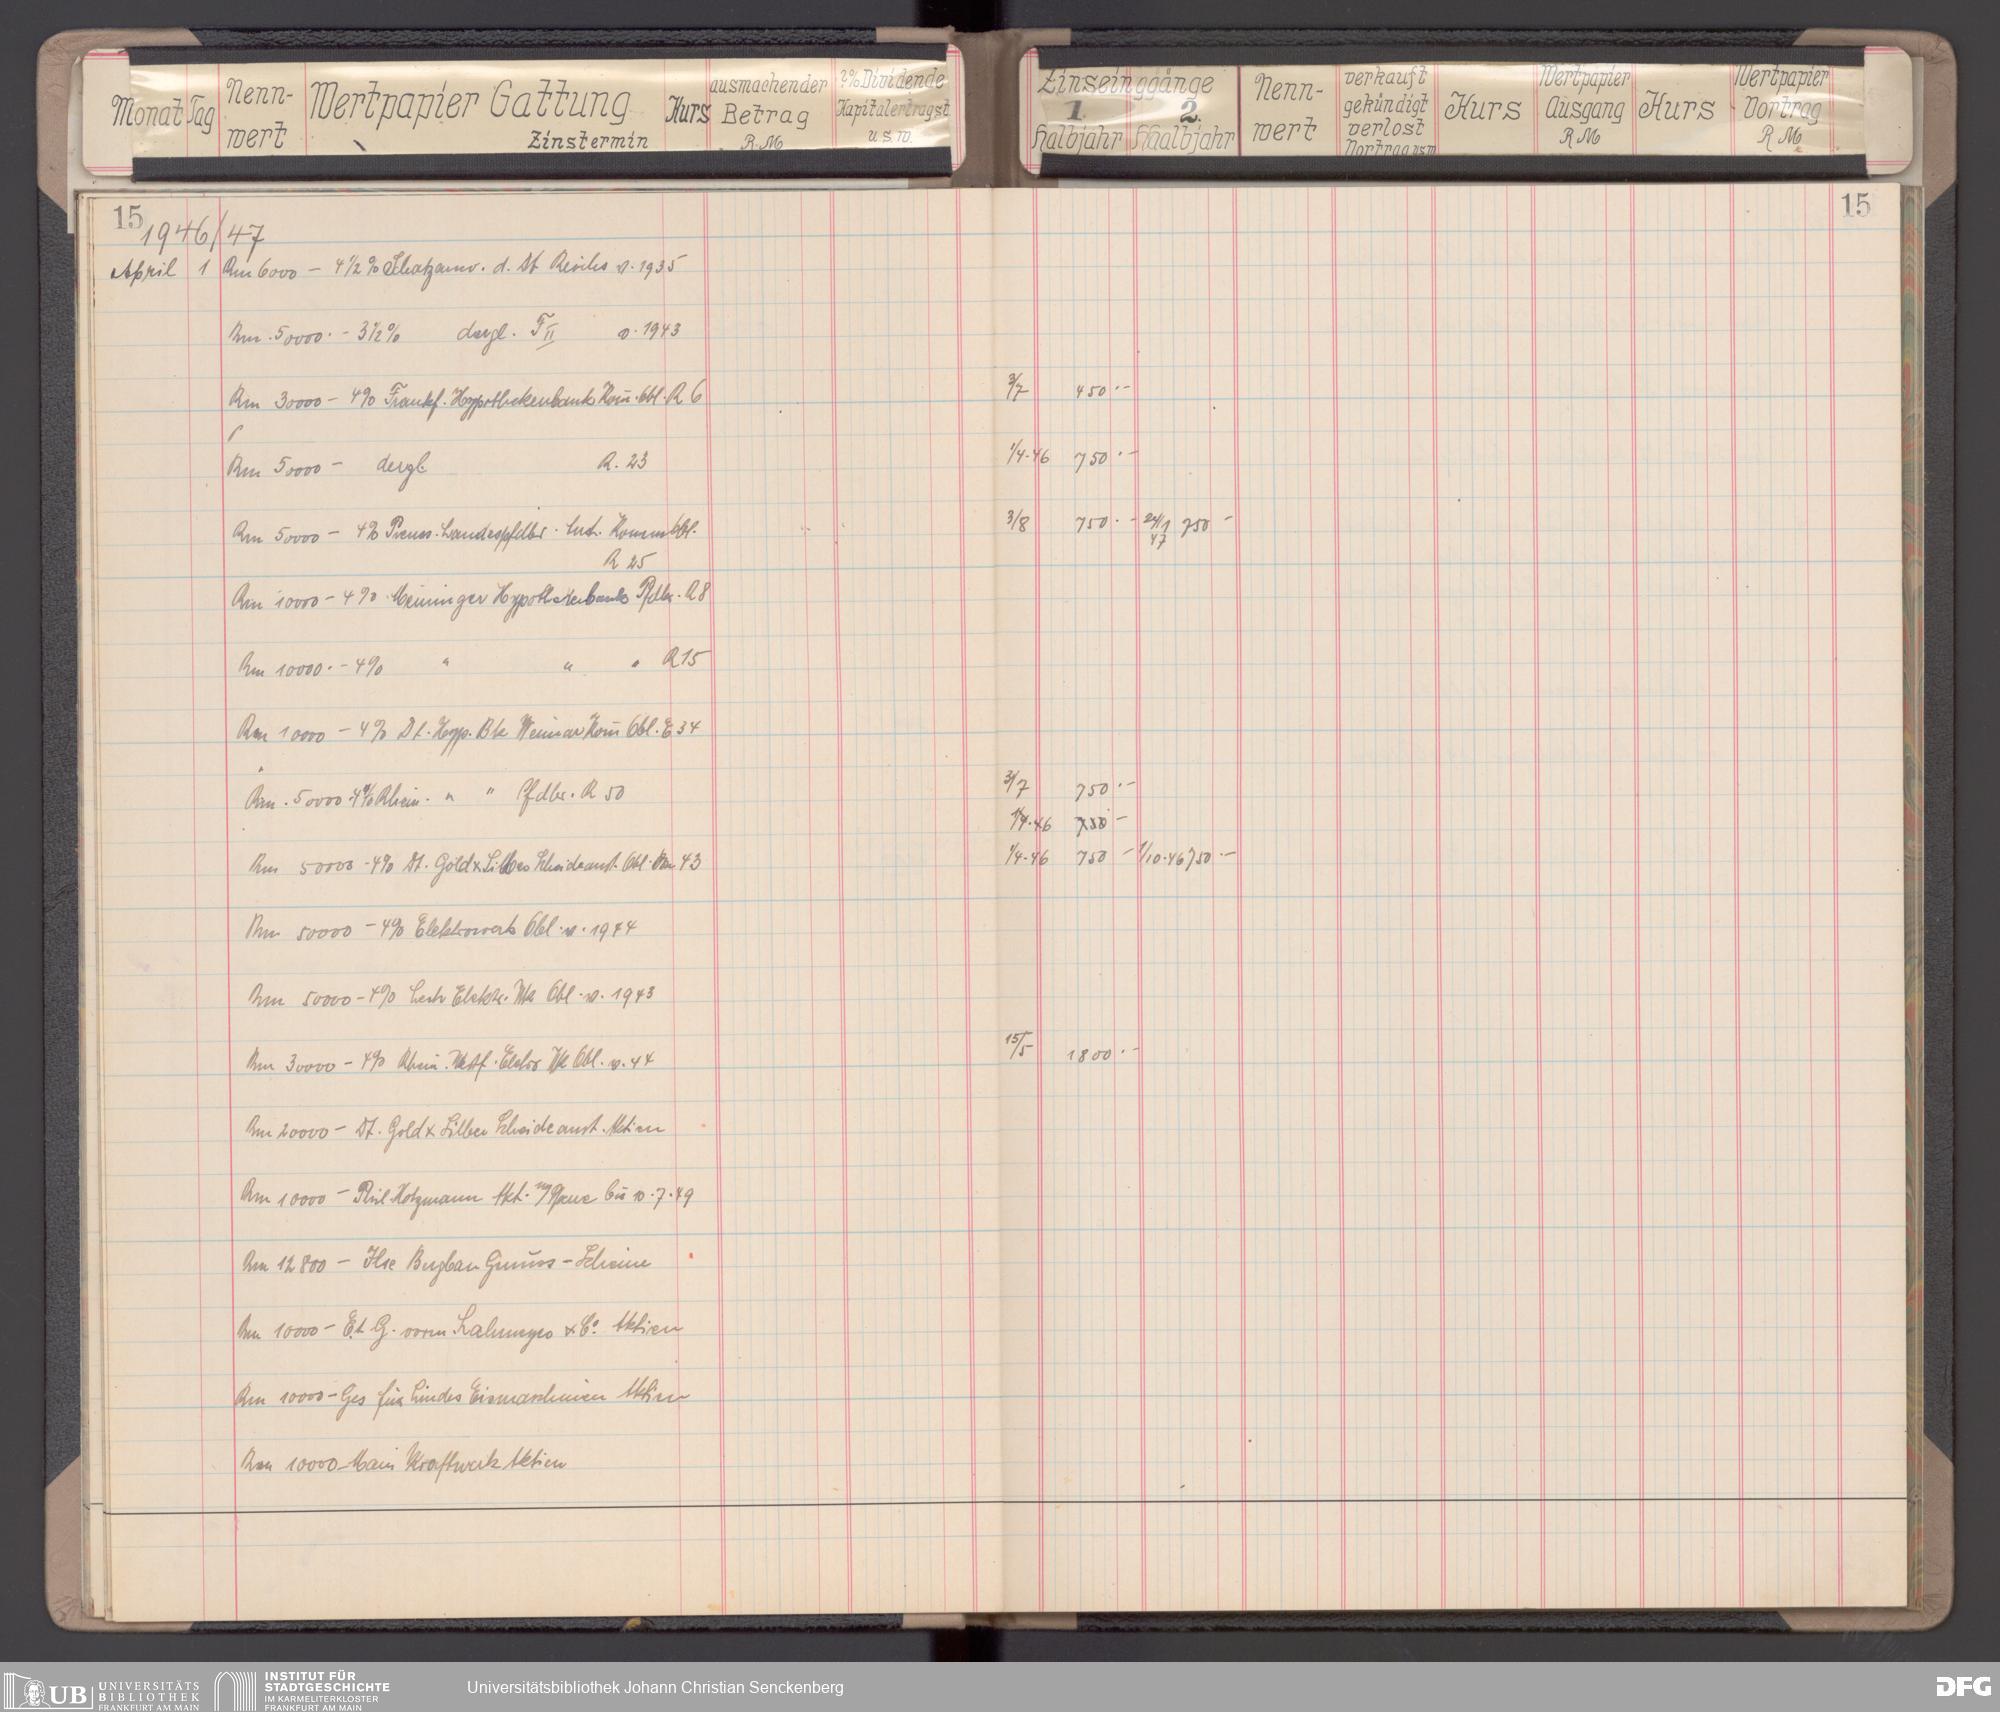 Monat Tag Nenn-wert Wertpapier Gattung Zinstermin Kurs ausmachender Betrag R.M 2% Dividende Kapitalertragst. u.s.w.
Zinseinggänge 1. Halbjahr 2. Haalbjahr Nenn-wert verkauft gekündigt verlost Vortrag usw Kurs Wertpapier Ausgang RM Kurs Wertpapier Vortrag RM
15 15
1946/47
April 1 Rm 6000 – 4 1/2 % Schatzanw. d. Dt Reichs v. 1935
Rm. 50000.– 3 1/2 % dergl. F II v. 1943
Rm 30000 – 4% Frankf. Hypothekenbank Kom. Obl. R 6 3/7 450.–
Rm 50000 – dergl. R. 23 1/4.46 750.–
Rm 50000 – 4% Preuss. Landespfdbr. Inst. Komm Obl. 3/8 750.– 24/1 47 750 –
R 25
Rm 10000 – 4% Meininger Hypothekenbank Pfdbr. R 8
Rm 10000.– 4% " " " R 15
Rm 10000 – 4% Dt. Hyp. Bk Weimar Kom Obl. E 34
Rm. 50000.4% Rhein. " " Pfdbr. R 50 3/7 750.–
1/4.46 750 –
Rm 50000 – 4% Dt. Gold & Silber Scheideanst. Obl. von 43 1/4.46 750 – 1/10.46 750.–
Rm 50000 – 4% Elektrowerk Obl. v. 1944
Rm 50000 – 4% Lech Elektr. Wk Obl. v. 1943
Rm 30000 – 4% Rhein. Westf. Elektr Wk Obl. v. 44 15/5 1800.–
Rm 20000 – Dt. Gold & Silber Scheideanst. Aktien
Rm 10000 – Phil. Holzmann Akt. bis 10.7.49
Rm 12800 – Ilse Bergbau Genuss – Scheine
Rm 10000 – E.A.G. vorm Lahmeyer & Co. Aktien
Rm 10000 – Ges für Lindes Eismaschinen Aktien
Rm 10000 – Main Kraftwerk Aktien
UB UNIVERSITÄTS BIBLIOTHEK FRANKFURT AM MAIN
INSTITUT FÜR STADTGESCHICHTE IM KARMELITERKLOSTER FRANKFURT AM MAIN
Universitätsbibliothek Johann Christian Senckenberg
DFG